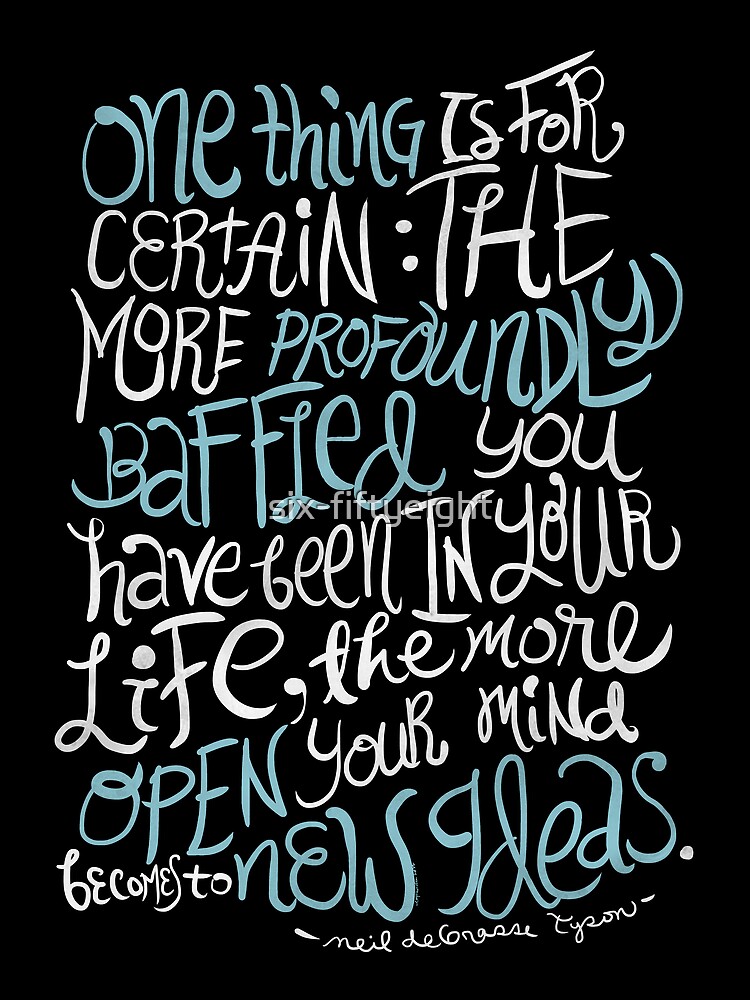 One thing is for
certain: the
more profoundly
baffled you
have been in your
life, the more
open your mind
becomes to new ideas.
- neil deGrasse Tyson -
six-fiftyeight